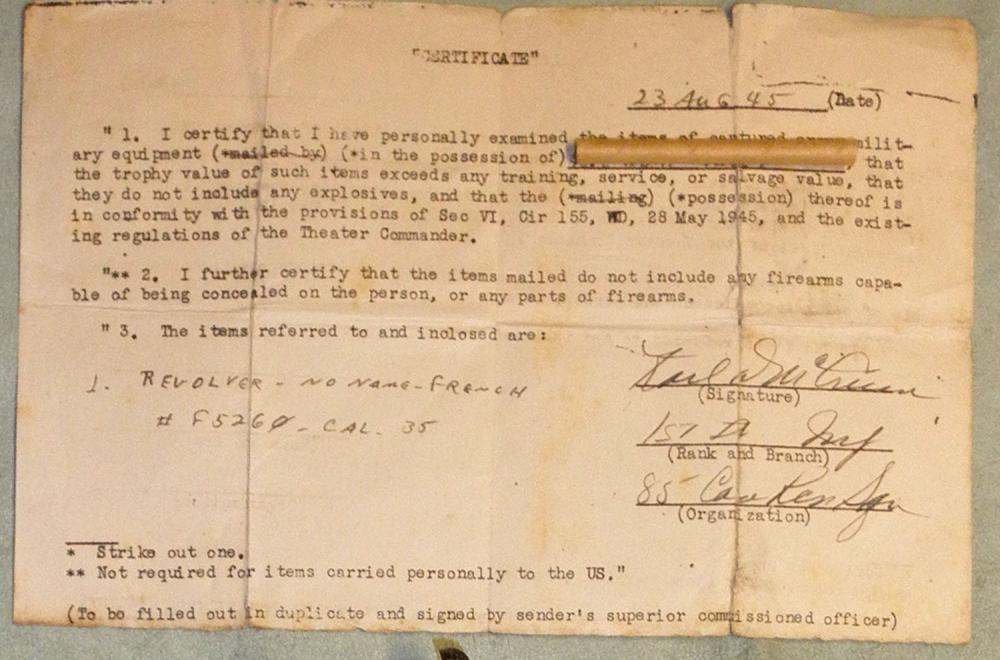 "CERTIFICATE"
23 Aug 45 (Date)
" 1. I certify that I have personally examined the items of captured enemy milit-
ary equipment (*mailed by) (*in the possession of) that
the trophy value of such items exceeds any training, service, or salvage value, that
they do not include any explosives, and that the (*mailing) (*possession) thereof is
in conformity with the provisions of Sec VI, Cir 155, WD, 28 May 1945, and the exist-
ing regulations of the Theater Commander.
"** 2. I further certify that the items mailed do not include any firearms capa-
ble of being concealed on the person, or any parts of firearms.
" 3. The items referred to and inclosed are:
1. REVOLVER - NO NAME - FRENCH
# F5260 - CAL. 35
(Signature)
1st Lt Inf
(Rank and Branch)
85 Cav Rcn Sqn
(Organization)
* Strike out one.
** Not required for items carried personally to the US."
(To be filled out in duplicate and signed by sender's superior commissioned officer)